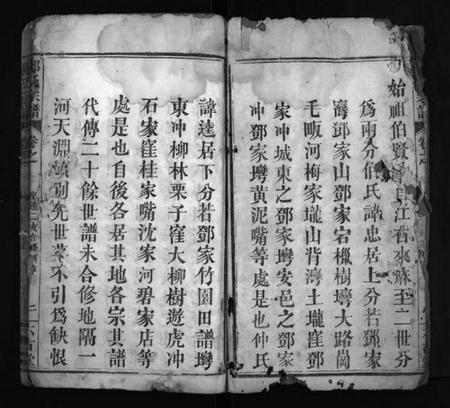 始祖伯賢自江右來麻至二世分
為兩分伯氏諱忠居上分若鄧家
灣邱家山鄧家宕檵樹灣大路崗
毛畈河梅家壠山背灣土壠窪鄧
家冲城東之鄧家塆安邑之鄧家
冲鄧家塆黃泥嘴等處是也仲氏
諱逵居下分若鄧家竹園田譜塆
東冲柳林栗子窪大柳樹遊虎冲
石家窪桂家嘴沈家河碧家店等
處是也自後各居其地各宗其譜
代傳二十餘世譜未合修地隔一
河天淵頓別先世莫不引為缺恨
氏宗譜
卷之